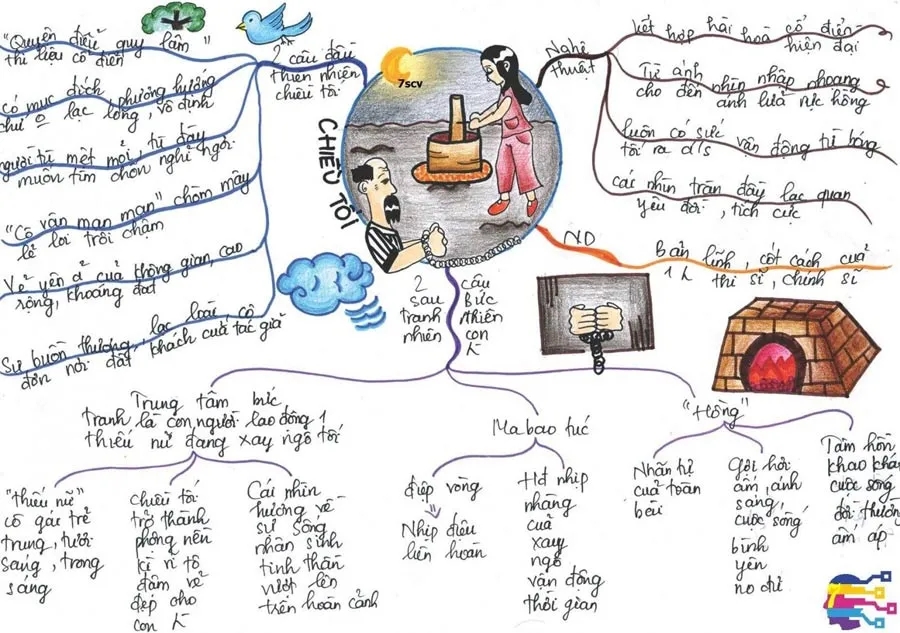 "Quyện điểu quy lâm"
thi liệu cổ điển
có mục đích phương hướng
chứ o lạc lõng, vô định
người tù mệt mỏi, tù đày
muốn tìm chốn nghỉ ngơi.
"Cô vân mạn mạn" chòm mây
lẻ loi trôi chậm
Vẻ yên ả của không gian, cao
rộng, khoáng đạt
Sự buồn thương, lạc loài, cô
đơn nơi đất khách của tác giả
2 câu đầu
thiên nhiên
chiều tối
CHIỀU TỐI
7scv
Nghệ
thuật
kết hợp hài hoà cổ điển
hiện đại
Từ ánh nhìn nhập nhoạng
cho đến ánh lửa rực hồng
luôn có sức vận động từ bóng
tối ra a/s
cái nhìn tràn đầy lạc quan
yêu đời, tích cực
ND
Bản lĩnh, cốt cách của
1 thi sĩ, chính sĩ
2 câu
sau Bức
tranh thiên
nhiên con
Trung tâm bức
tranh là con người lao động 1
thiếu nữ đang xay ngô tối
"thiếu nữ"
cô gái trẻ
trung, tươi
sáng, trong
sáng
chiều tối
trở thành
phông nền
kì vĩ tô
đậm vẻ
đẹp cho
con
Cái nhìn
hướng về
sự sống
nhân sinh
tinh thần
vượt lên
trên hoàn cảnh
Ma bao túc
điệp vòng
Nhịp điệu
liên hoàn
Hđ nhịp
nhàng
của
xay
ngô
vận động
thời gian
"Hồng"
Nhãn tự
của toàn
bài
Gợi hơi
ấm, ánh
sáng,
cuộc sống
bình
yên
no đủ
Tâm hồn
khao khát
cuộc sống
đời thường
ấm áp